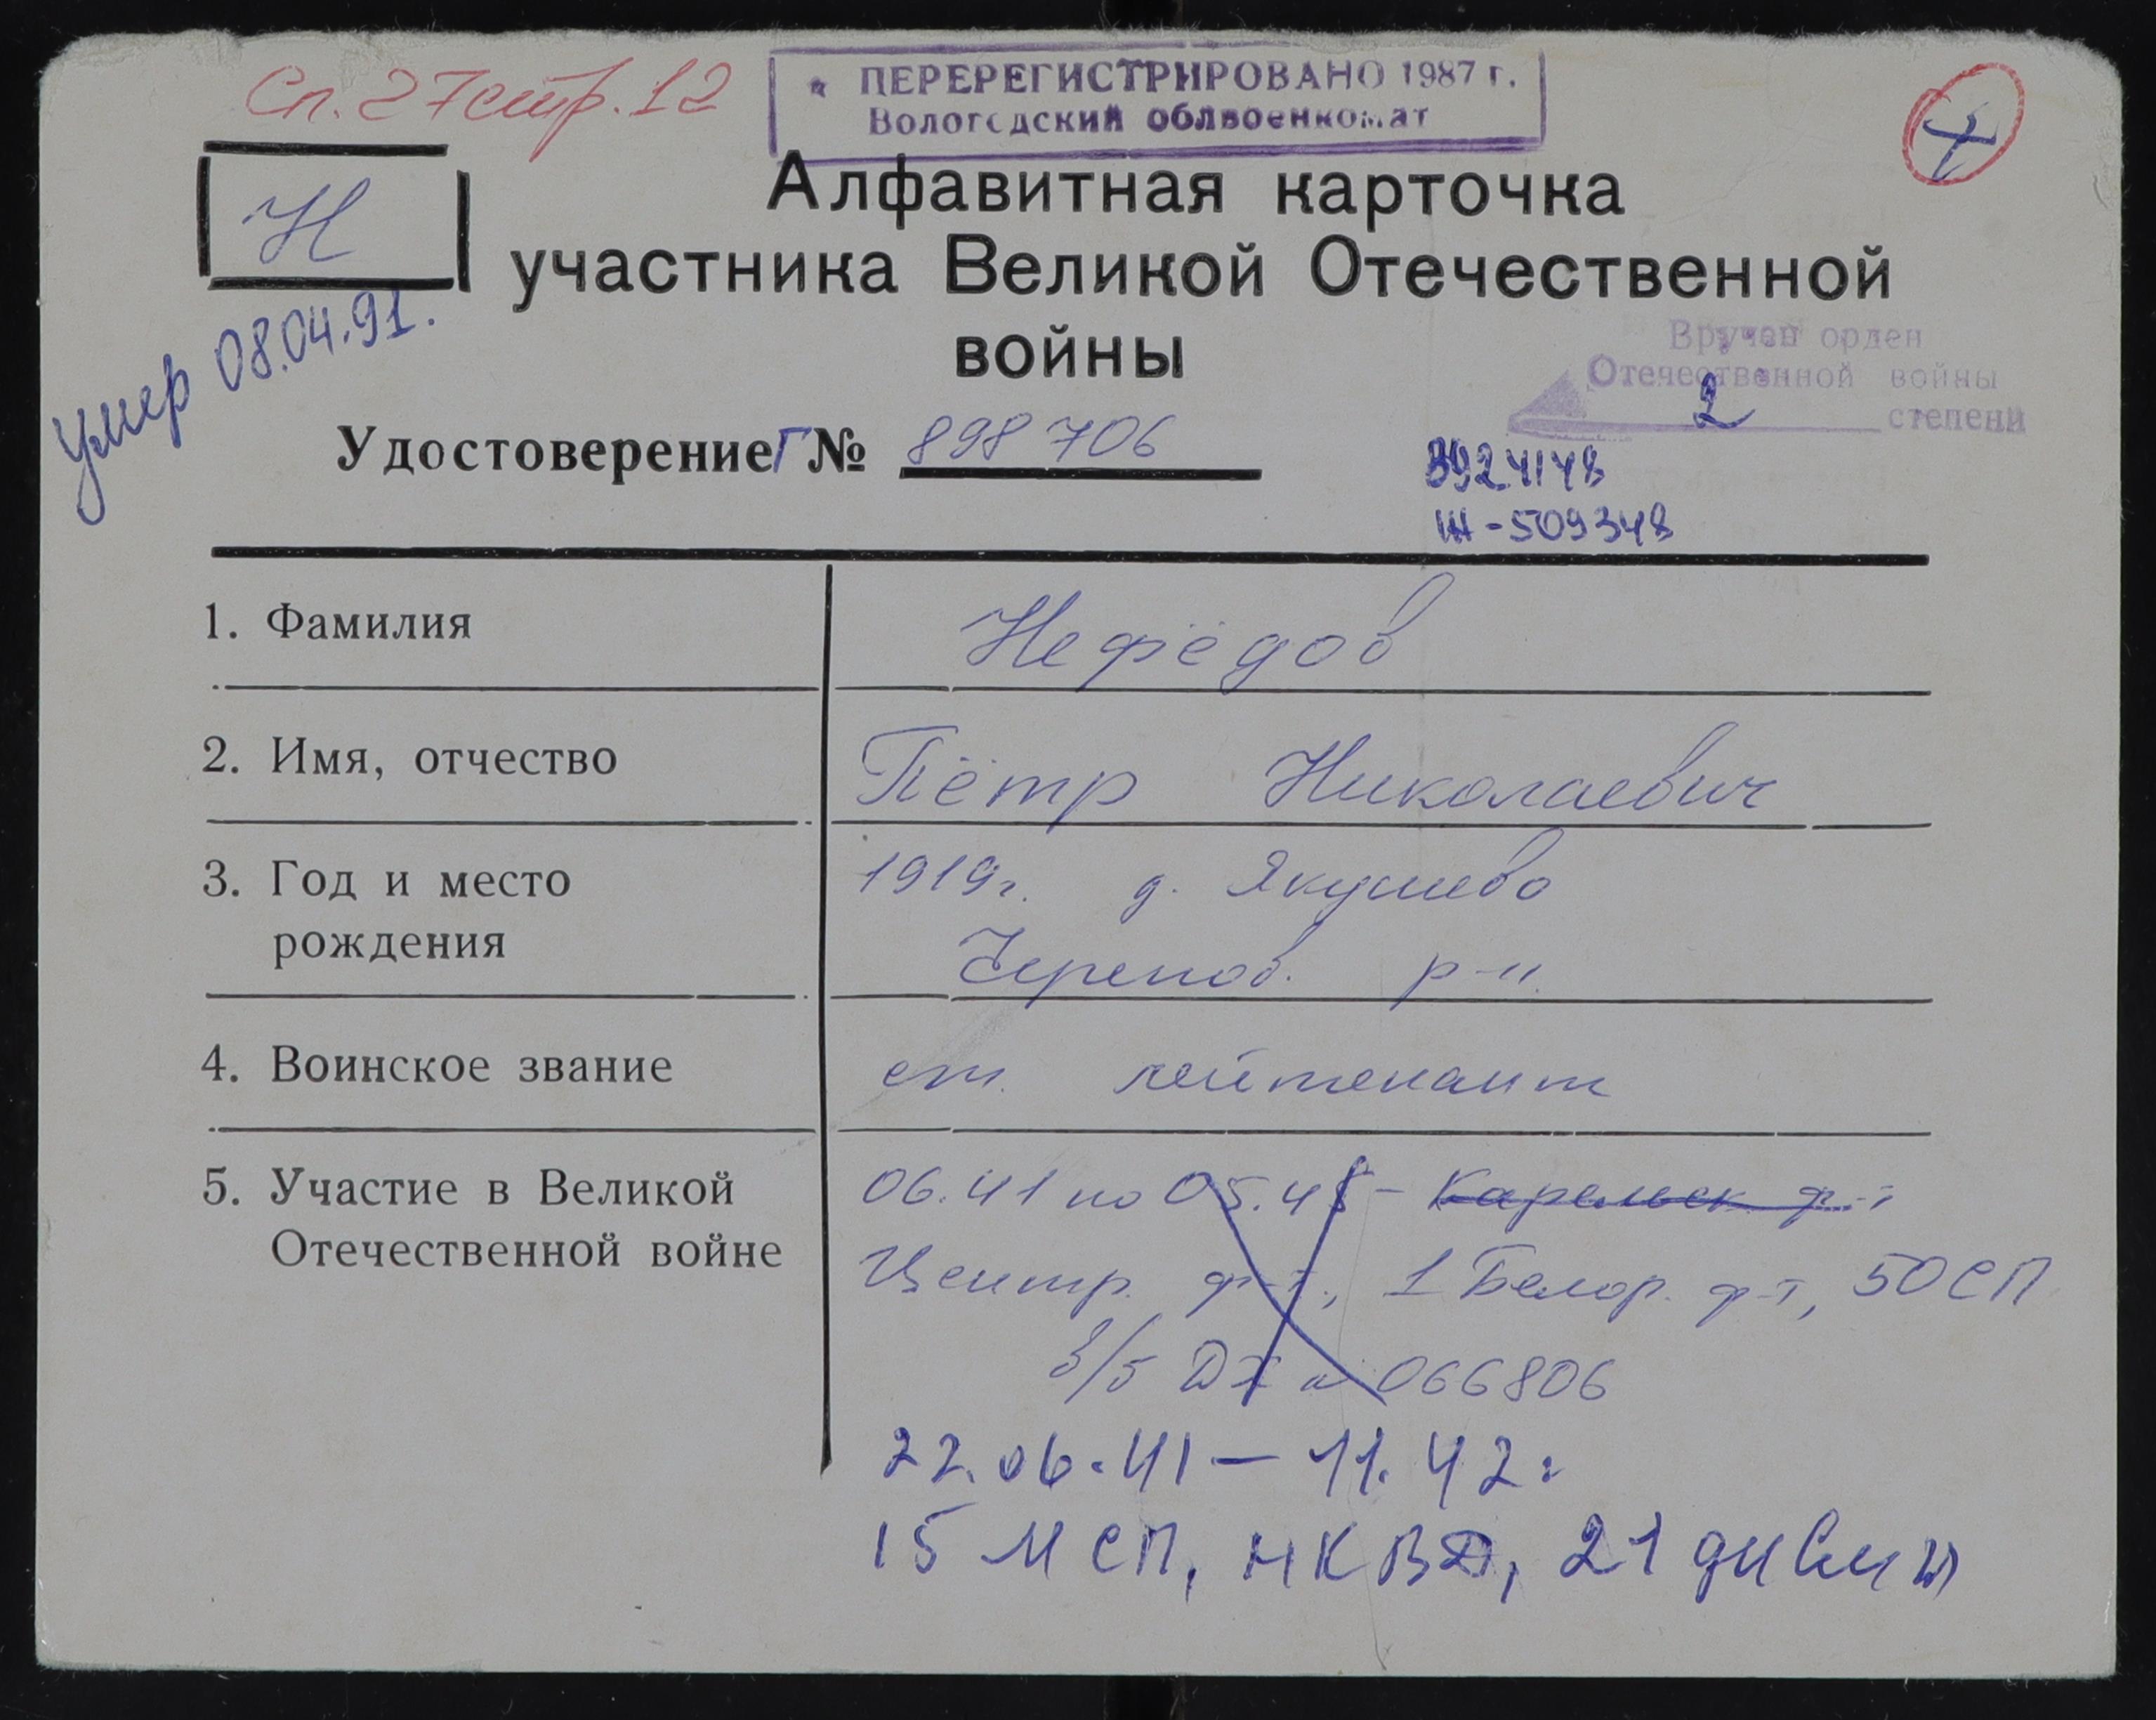 Сп. 27 стр. 12
ПЕРЕРЕГИСТРИРОВАНО 1987 г.
Вологодский облвоенкомат
Н
Алфавитная карточка
участника Великой Отечественной
войны
умер 08.04.91.
Вручен орден
Отечественной войны
2 степени
Удостоверение Г № 898706
3924148
509348
1. Фамилия Нефёдов
2. Имя, отчество Пётр Николаевич
3. Год и место 1919г. д. Якушево
рождения Черепов. р-н.
4. Воинское звание ст. лейтенант
5. Участие в Великой 06.41 по 05.45 - Карельск ф-т
Отечественной войне Центр. ф-т, 1 Белор. ф-т, 50 СП
в/б 066806
22.06.41 – 11.42г
15 МСП, НКВД, 21 дивизи